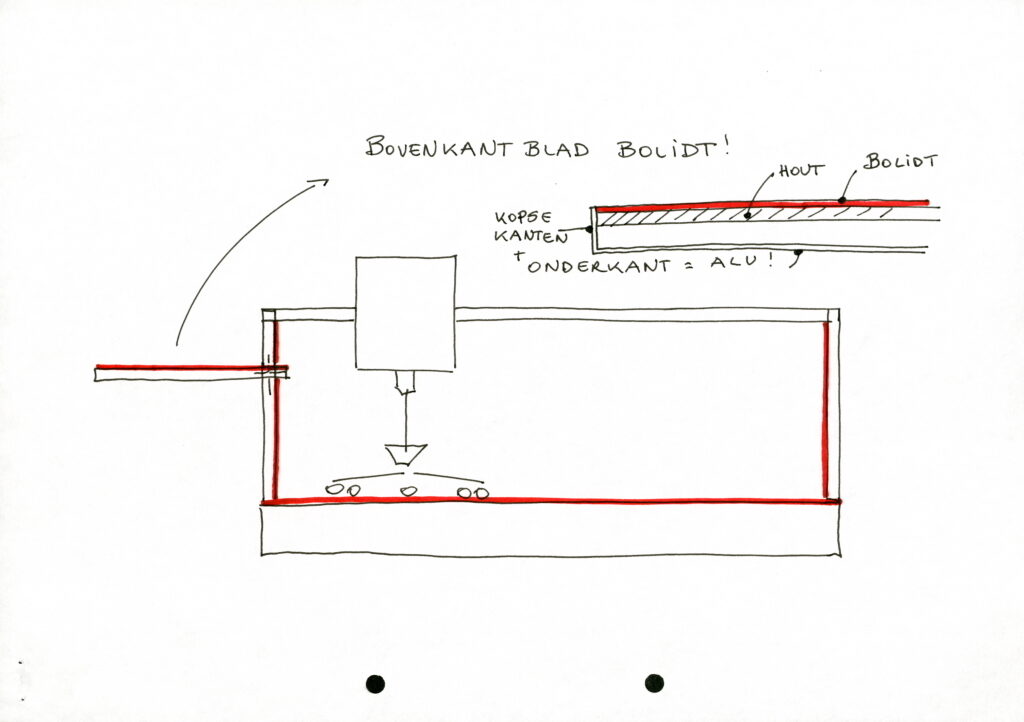 BOVENKANT BLAD BOLIDT!
HOUT
BOLIDT
KOPSE
KANTEN
+
ONDERKANT = ALU!